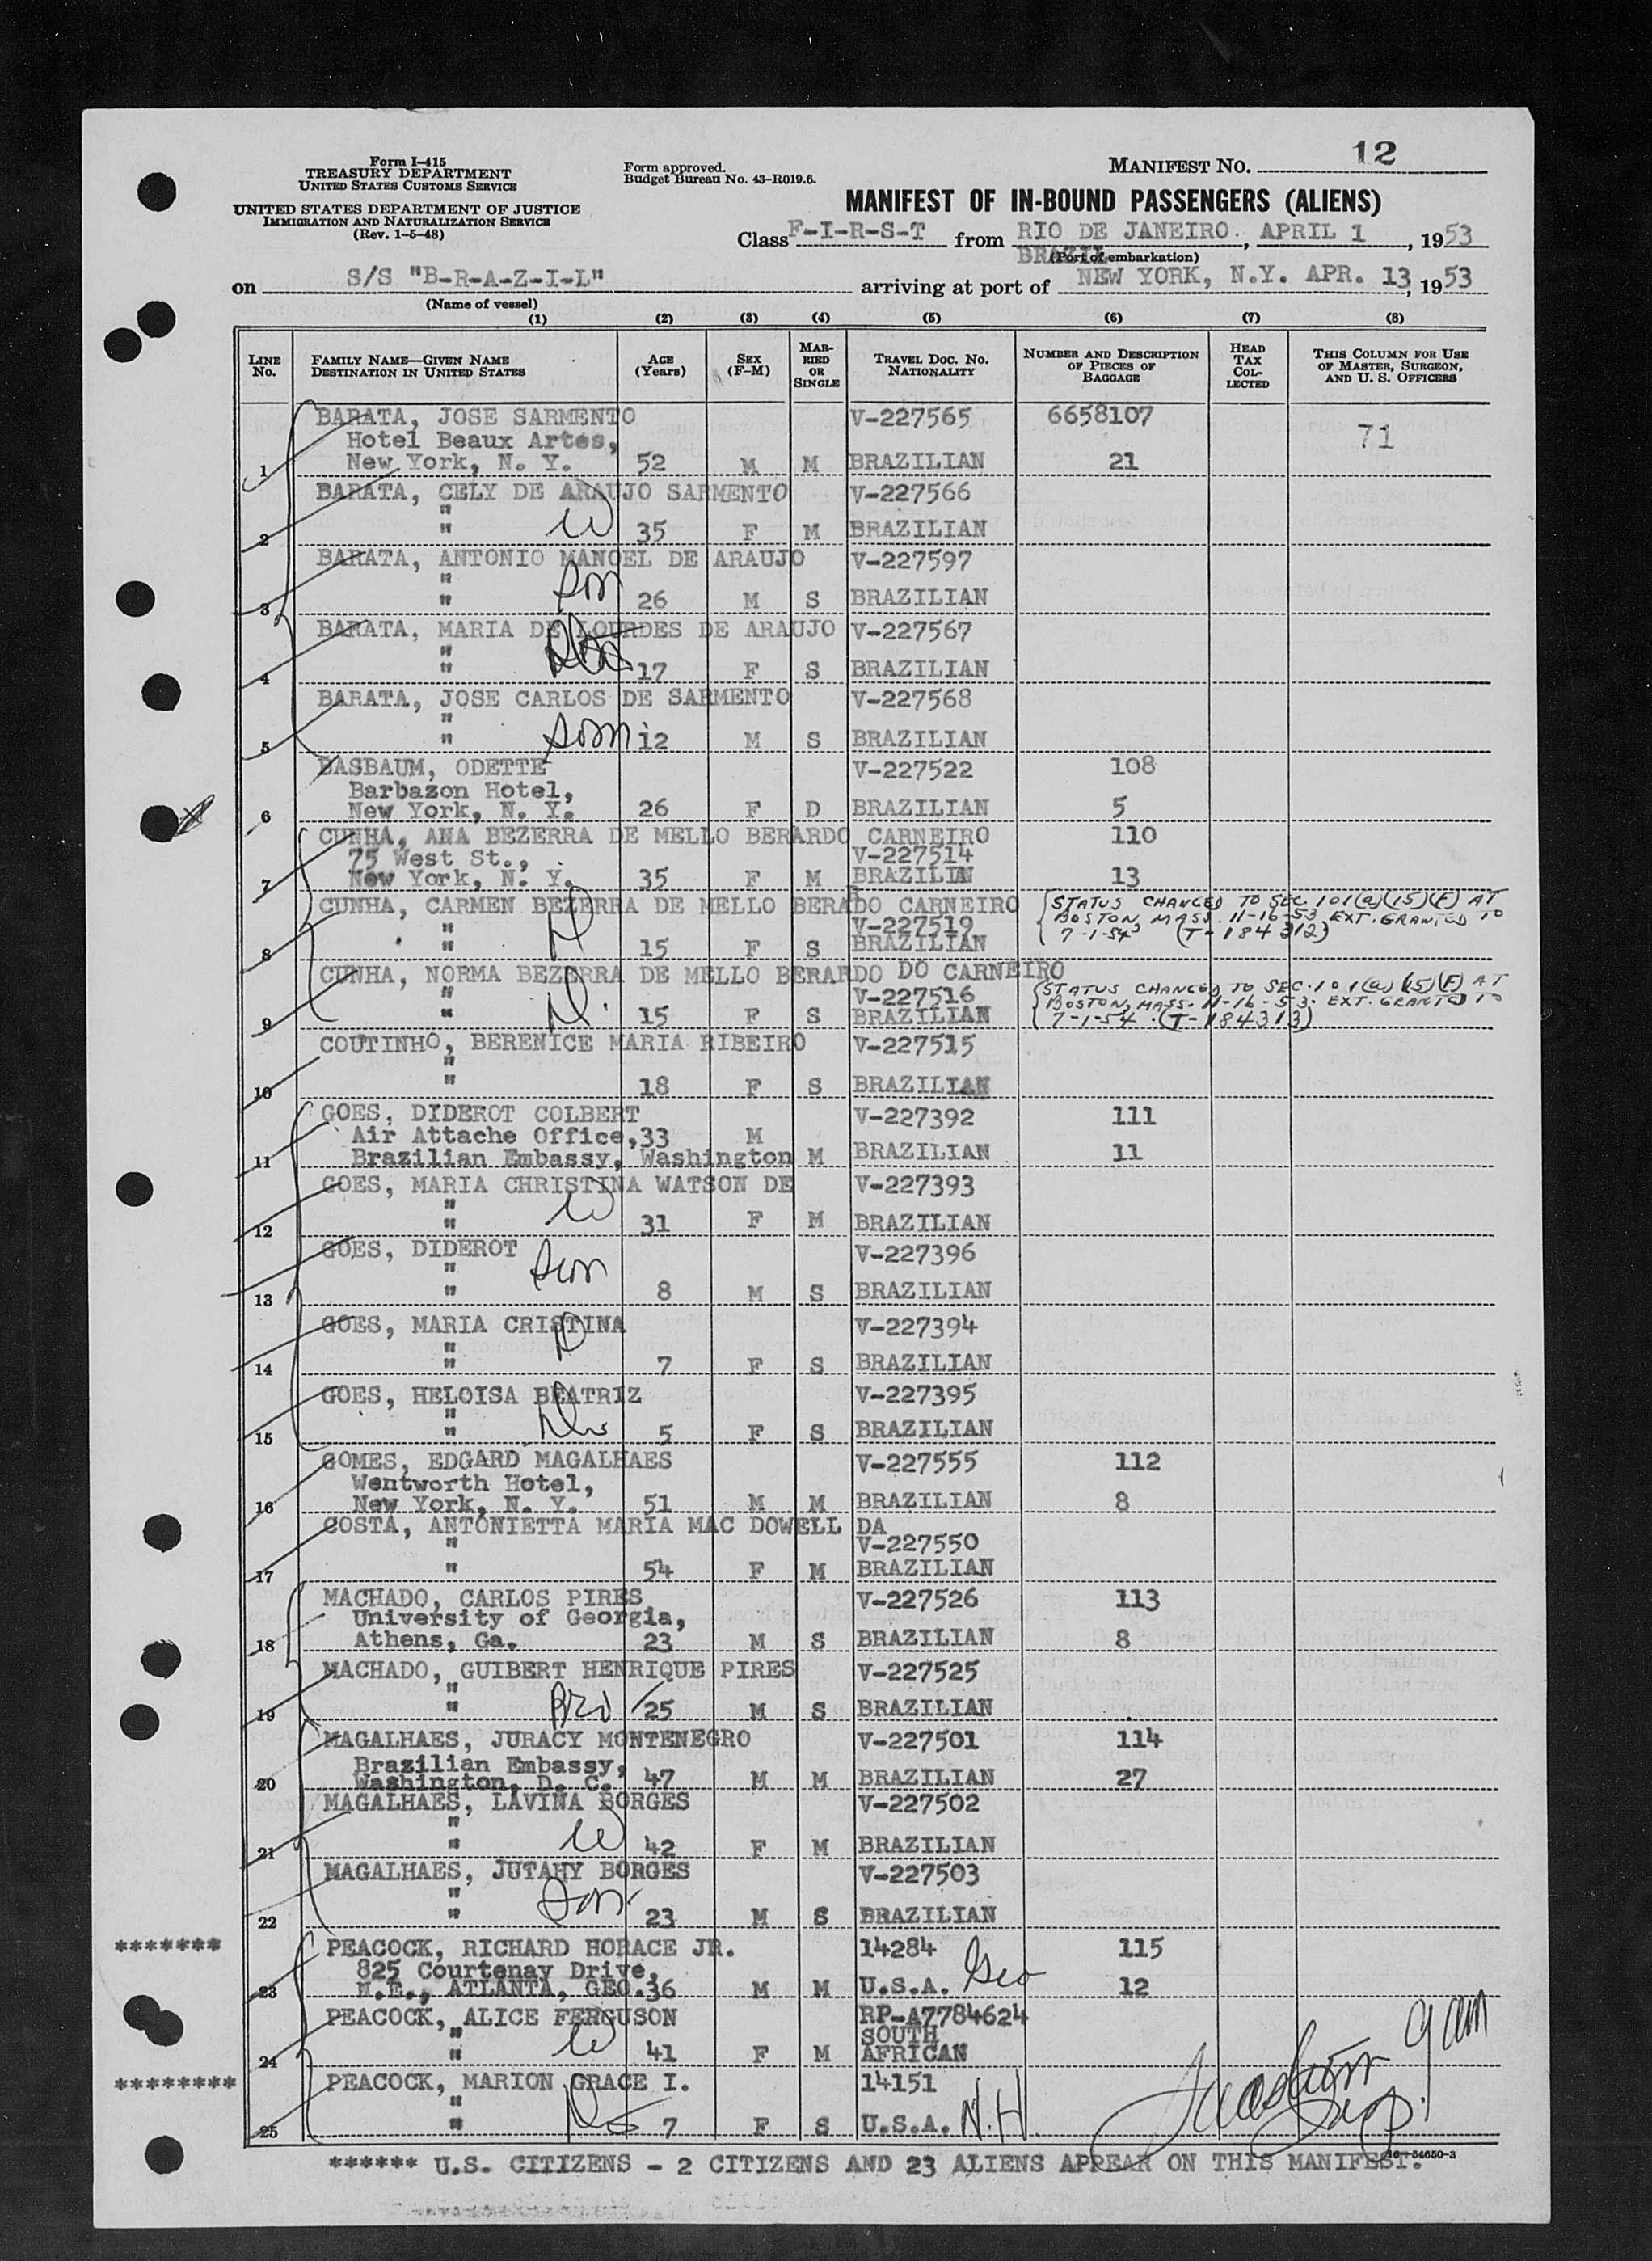 Form I-415
TREASURY DEPARTMENT
UNITED STATES CUSTOMS SERVICE
UNITED STATES DEPARTMENT OF JUSTICE
IMMIGRATION AND NATURALIZATION SERVICE
(Rev. 1-5-48)
Form approved.
Budget Bureau No. 43-R019.6.
MANIFEST NO. 12
MANIFEST OF IN-BOUND PASSENGERS (ALIENS)
Class F-I-R-S-T from RIO DE JANEIRO, APRIL 1, 1953
BRAZIL (Port of embarkation)
on S/S "B-R-A-Z-I-L" arriving at port of NEW YORK, N.Y. APR. 13, 1953
(Name of vessel)
(1) (2) (3) (4) (5) (6) (7) (8)
LINE NO. FAMILY NAME—GIVEN NAME DESTINATION IN UNITED STATES AGE (Years) SEX (F-M) MARRIED OR SINGLE TRAVEL DOC. NO. NATIONALITY NUMBER AND DESCRIPTION OF PIECES OF BAGGAGE HEAD TAX COLLECTED THIS COLUMN FOR USE OF MASTER, SURGEON, AND U. S. OFFICERS
BARATA, JOSE SARMENTO V-227565 6658107
Hotel Beaux Artes, 71
1 New York, N. Y. 52 M M BRAZILIAN 21
BARATA, CELY DE ARAUJO SARMENTO V-227566
"
2 " W 35 F M BRAZILIAN
BARATA, ANTONIO MANOEL DE ARAUJO V-227597
"
3 " son 26 M S BRAZILIAN
BARATA, MARIA DE LOURDES DE ARAUJO V-227567
"
4 " 17 F S BRAZILIAN
BARATA, JOSE CARLOS DE SARMENTO V-227568
"
5 " son 12 M S BRAZILIAN
BASBAUM, ODETTE V-227522 108
Barbazon Hotel,
6 New York, N. Y. 26 F D BRAZILIAN 5
CUNHA, ANA BEZERRA DE MELLO BERARDO CARNEIRO 110
75 West St., V-227514
7 New York, N. Y. 35 F M BRAZILIN 13
CUNHA, CARMEN BEZERRA DE MELLO BERARDO CARNEIRO STATUS CHANGED TO SEC. 101(a)(15)(F) AT
" V-227519 BOSTON, MASS. 11-16-53 EXT. GRANTED TO
8 " D 15 F S BRAZILIAN 7-1-54 (T-184312)
CUNHA, NORMA BEZERRA DE MELLO BERARDO DO CARNEIRO STATUS CHANGED TO SEC. 101(a)(15)(F) AT
" V-227516 BOSTON, MASS. 11-16-53. EXT. GRANTED TO
9 " D. 15 F S BRAZILIAN 7-1-54. (T-184313)
COUTINHO, BERENICE MARIA RIBEIRO V-227515
"
10 " 18 F S BRAZILIAN
GOES, DIDEROT COLBERT V-227392 111
Air Attache Office, 33 M
11 Brazilian Embassy, Washington M BRAZILIAN 11
GOES, MARIA CHRISTINA WATSON DE V-227393
"
12 " W 31 F M BRAZILIAN
GOES, DIDEROT V-227396
" son
13 " 8 M S BRAZILIAN
GOES, MARIA CRISTINA V-227394
" D
14 " 7 F S BRAZILIAN
GOES, HELOISA BEATRIZ V-227395
"
15 " 5 F S BRAZILIAN
GOMES, EDGARD MAGALHAES V-227555 112
Wentworth Hotel,
16 New York, N. Y. 51 M M BRAZILIAN 8
COSTA, ANTONIETTA MARIA MAC DOWELL DA
" V-227550
17 " 54 F M BRAZILIAN
MACHADO, CARLOS PIRES V-227526 113
University of Georgia,
18 Athens, Ga. 23 M S BRAZILIAN 8
MACHADO, GUIBERT HENRIQUE PIRES V-227525
"
19 " Bro 25 M S BRAZILIAN
MAGALHAES, JURACY MONTENEGRO V-227501 114
Brazilian Embassy,
20 Washington, D. C. 47 M M BRAZILIAN 27
MAGALHAES, LAVINA BORGES V-227502
"
21 " W 42 F M BRAZILIAN
MAGALHAES, JUTAHY BORGES V-227503
"
22 " Son 23 M S BRAZILIAN
******* PEACOCK, RICHARD HORACE JR. 14284 Geo 115
825 Courtenay Drive,
23 N.E., ATLANTA, GEO. 36 M M U.S.A. 12
PEACOCK, ALICE FERGUSON RP-A7784624
" SOUTH
24 " W 41 F M AFRICAN
******** PEACOCK, MARION GRACE I. 14151
"
25 " 7 F S U.S.A. N.H.
16-54650-3
****** U.S. CITIZENS - 2 CITIZENS AND 23 ALIENS APPEAR ON THIS MANIFEST.